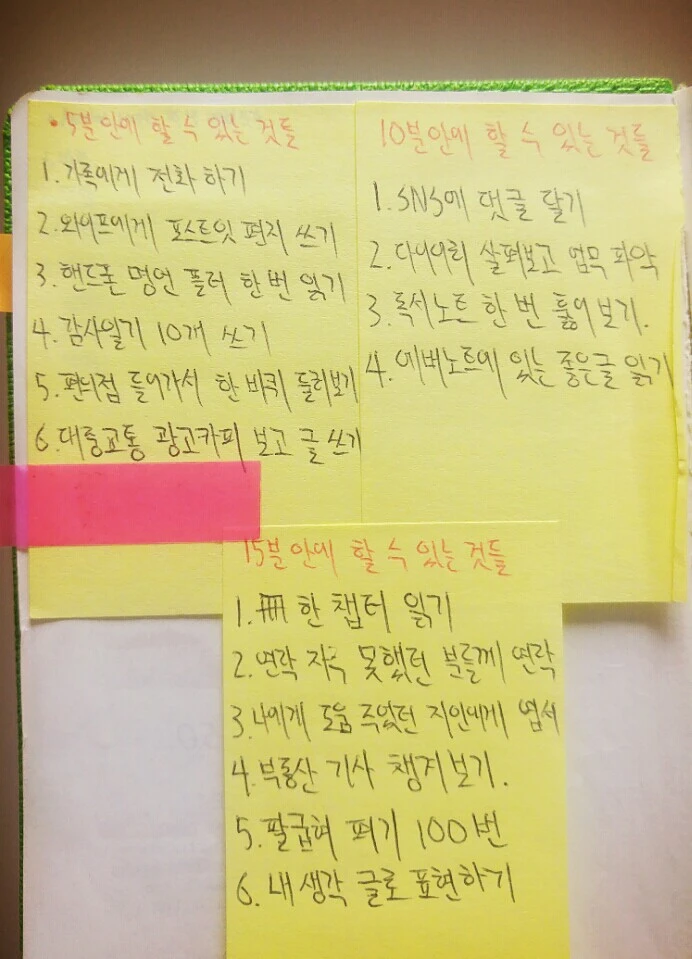 • 5분안에 할 수 있는 것들
1. 가족에게 전화하기
2. 와이프에게 포스트잇 편지 쓰기
3. 핸드폰 명언 플러 한 번 읽기
4. 감사일기 10개 쓰기
5. 편의점 들어가서 한 바퀴 둘러보기
6. 대중교통 광고카피 보고 글 쓰기
10분안에 할 수 있는 것들
1. SNS에 댓글 달기
2. 다이어리 살펴보고 업무 파악
3. 독서노트 한 번 훑어보기.
4. 에버노트에 있는 좋은글 읽기
15분안에 할 수 있는 것들
1. 冊 한 챕터 읽기
2. 연락 자주 못했던 분들께 연락
3. 나에게 도움 주었던 지인에게 엽서
4. 부동산 기사 챙겨보기.
5. 팔굽혀 펴기 100번
6. 내 생각 글로 표현하기